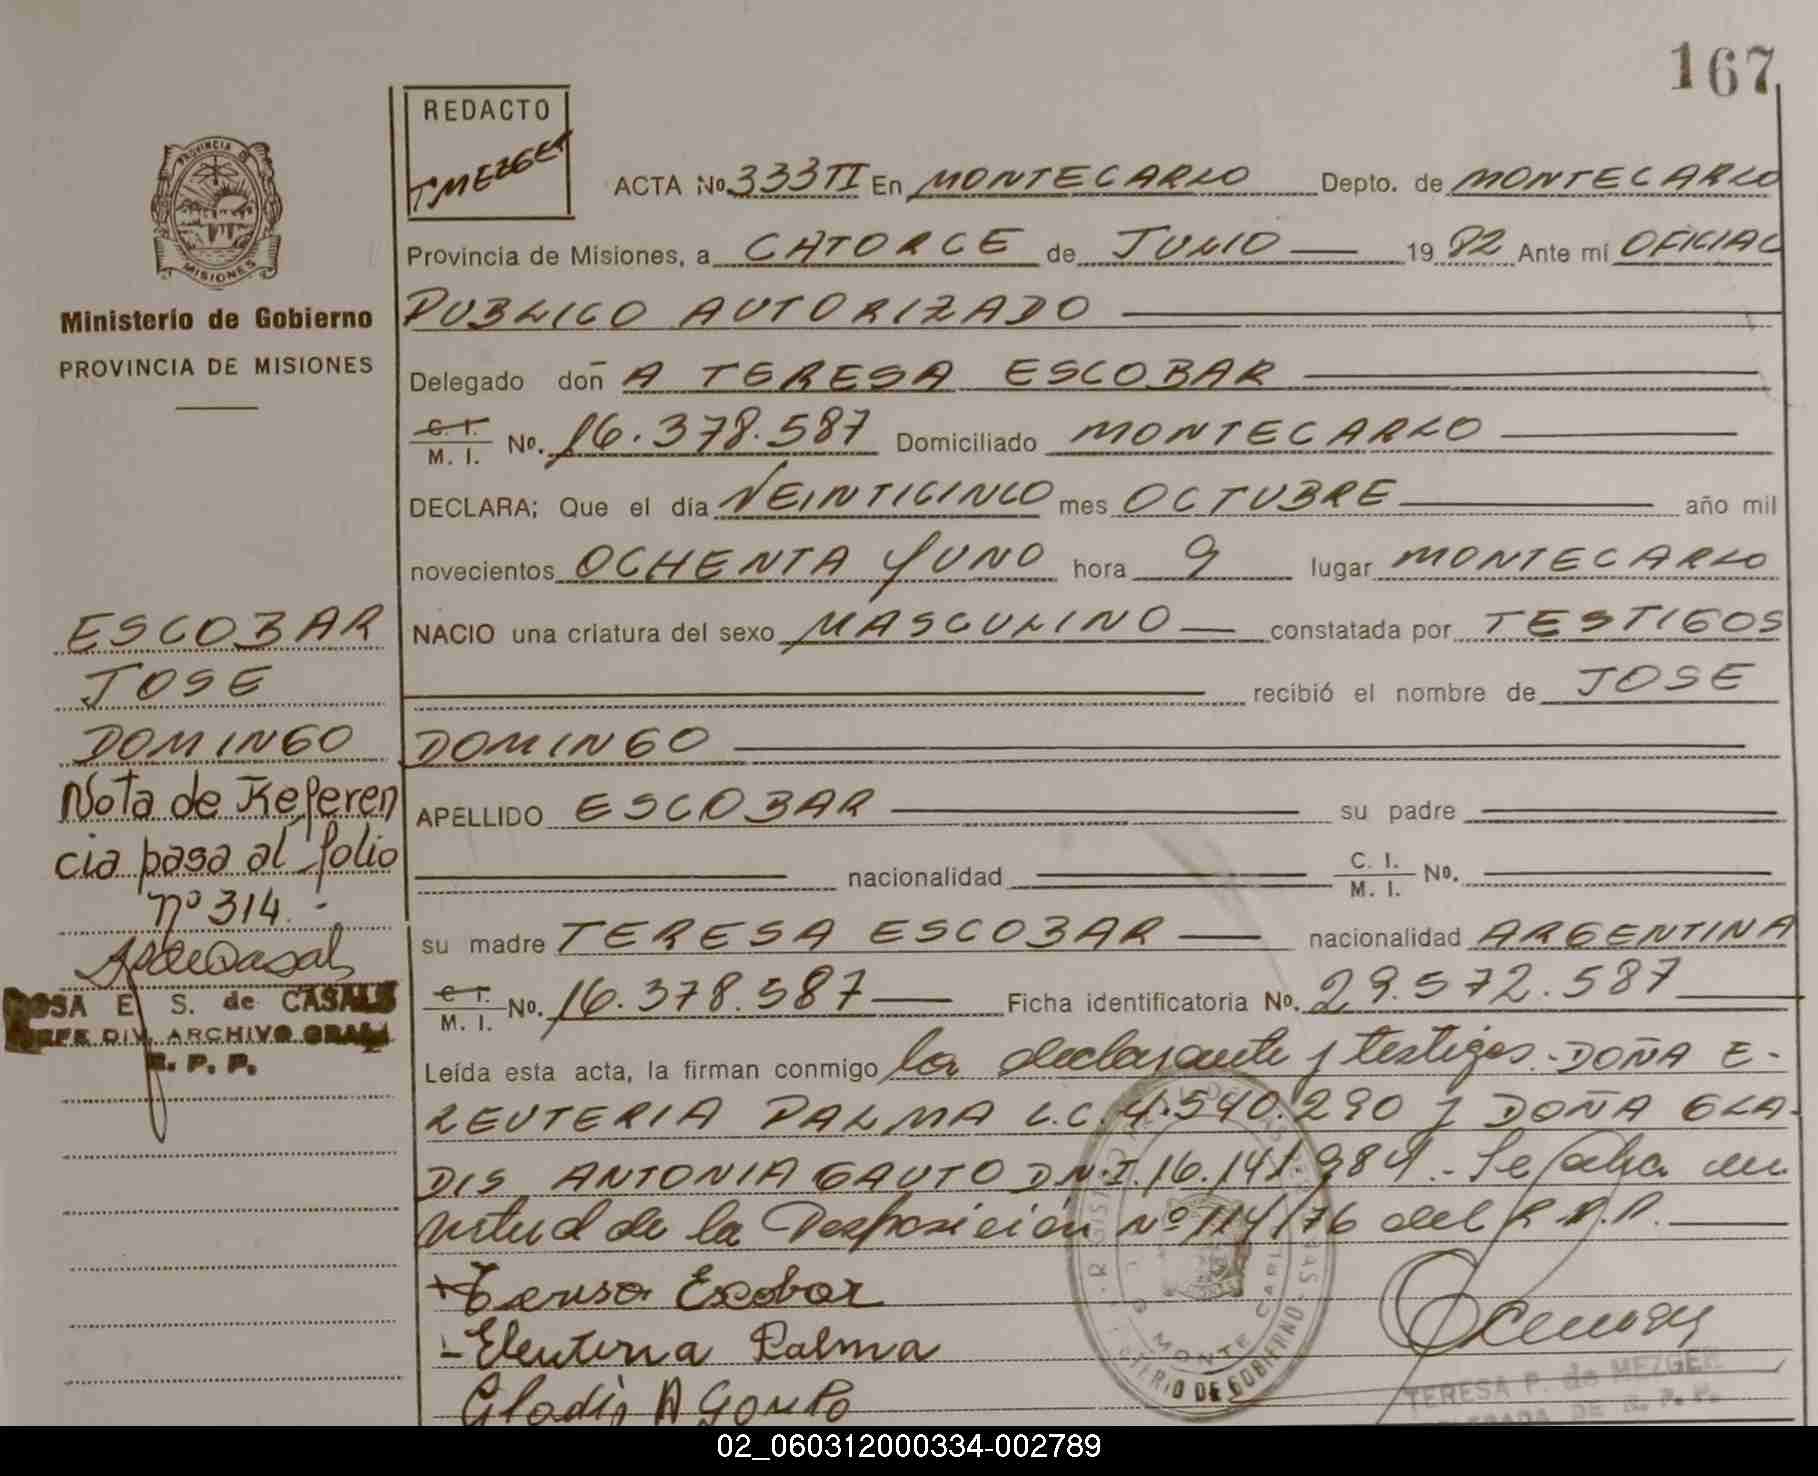 167
REDACTO
TMEZGER
ACTA No. 333TI En MONTECARLO Depto. de MONTECARLO
PROVINCIA DE
MISIONES
Provincia de Misiones, a CATORCE de JUNIO 1982 Ante mí OFICIAL
Ministerio de Gobierno
PUBLICO AUTORIZADO
PROVINCIA DE MISIONES
Delegado don A TERESA ESCOBAR
C. I.
M. I. No. 16.378.587 Domiciliado MONTECARLO
DECLARA; Que el día VEINTICINCO mes OCTUBRE año mil
novecientos OCHENTA Y UNO hora 9 lugar MONTECARLO
ESCOBAR
NACIO una criatura del sexo MASCULINO constatada por TESTIGOS
JOSE
recibió el nombre de JOSE
DOMINGO
DOMINGO
Nota de Referen
APELLIDO ESCOBAR su padre
cia pasa al folio
nacionalidad C. I. M. I. No.
nº 314.
su madre TERESA ESCOBAR nacionalidad ARGENTINA
C. I.
M. I. No. 16.378.587 Ficha identificatoria No. 29.572.587
ROSA E. S. de CASALS
JEFE DIV. ARCHIVO GRAL.
R. P. P.
Leída esta acta, la firman conmigo la declarante y testigos. DOÑA E-
LEUTERIA PALMA L.C. 4.540.290 y DOÑA GLA-
DIS ANTONIA GAUTO D.N.I. 16.141.984. Se labra en
virtud de la Desposición Nº 114/76 del R.P.P.
Teresa Escobar
Eleuteria Palma
Gladis A Gauto
MONTE CARLO
MINISTERIO DE GOBIERNO
TERESA P. de MEZGER
DELEGADA DE R. P. P.
02_060312000334-002789